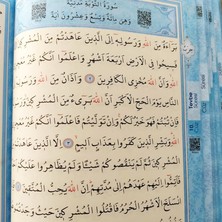 سُورَةُ التَّوْبَةِ مَدَنِيَّةٌ
وَهِيَ مِائَةٌ وَتِسْعٌ وَعِشْرُونَ آيَةً
بَرَاءَةٌ مِنَ اللّٰهِ وَرَسُولِهِ إِلَى الَّذِينَ عَاهَدْتُمْ مِنَ الْمُشْرِكِينَ
فَسِيحُوا فِي الْأَرْضِ أَرْبَعَةَ أَشْهُرٍ وَاعْلَمُوا أَنَّكُمْ غَيْرُ مُعْجِزِي
اللّٰهِ وَأَنَّ اللّٰهَ مُخْزِي الْكَافِرِينَ وَأَذَانٌ مِنَ اللّٰهِ وَرَسُولِهِ
النَّاسِ يَوْمَ الْحَجِّ الْأَكْبَرِ أَنَّ اللّٰهَ بَرِيءٌ مِنَ الْمُشْرِكِينَ
فَإِنْ تُبْتُمْ فَهُوَ خَيْرٌ لَكُمْ وَإِنْ تَوَلَّيْتُمْ فَاعْلَمُوا أَنَّكُمْ غَيْرُ
اللّٰهِ وَبَشِّرِ الَّذِينَ كَفَرُوا بِعَذَابٍ أَلِيمٍ إِلَّا الَّذِينَ عَاهَدْتُمْ
الْمُشْرِكِينَ ثُمَّ لَمْ يَنْقُصُوكُمْ شَيْئًا وَلَمْ يُظَاهِرُوا عَلَيْكُمْ
فَأَتِمُّوا إِلَيْهِمْ عَهْدَهُمْ إِلَى مُدَّتِهِمْ إِنَّ اللّٰهَ يُحِبُّ الْمُتَّقِينَ
انْسَلَخَ الْأَشْهُرُ الْحُرُمُ فَاقْتُلُوا الْمُشْرِكِينَ حَيْثُ وَجَدْتُمُوهُمْ